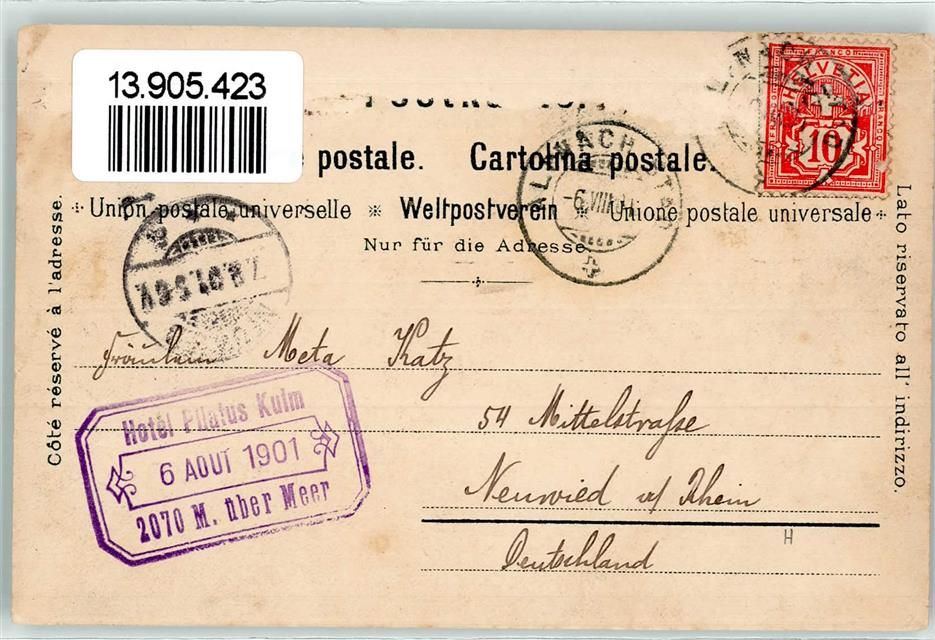 13.905.423
postale. Cartolina postale.
Union postale universelle Weltpostverein Unione postale universale
Nur für die Adresse.
Côté réservé à l'adresse.
Lato riservato all' indirizzo.
FRANCO
HELVETIA
10
ALPNACH
7.8.01.5-6V.
Fräulein Meta Katz
54 Mittelstraße
Neuwied a/ Rhein
Deutschland
H
Hotel Pilatus Kulm
6 AOUT 1901
2070 M. über Meer